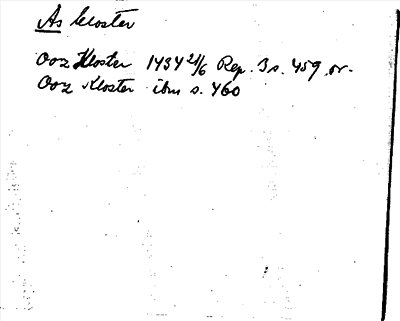 As kloster
Ooz Kloster 1434 21/6 Rep. 3 s. 459 or.
Ooz Kloster ibm s. 460